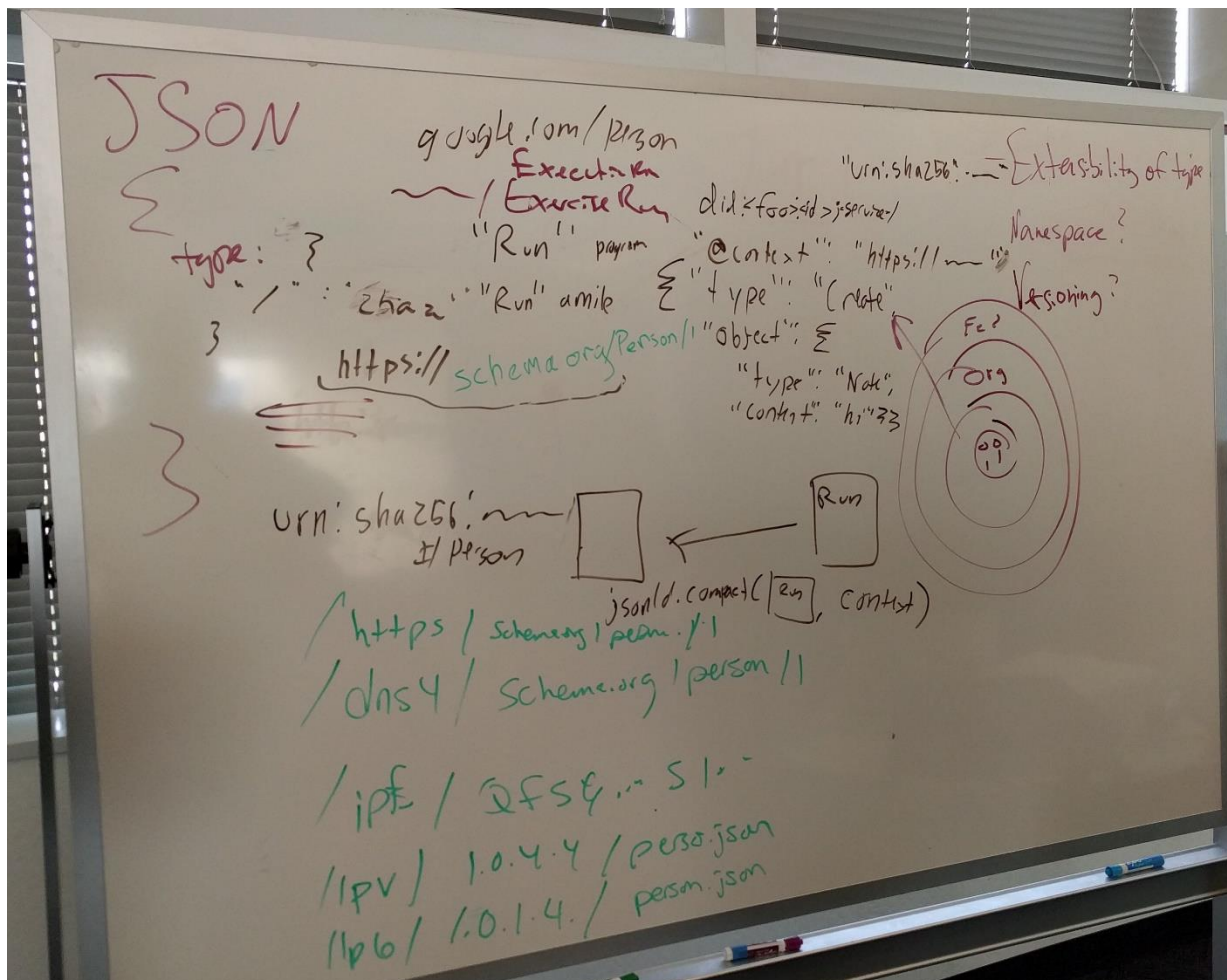 JSON
{
type: {
"/" :
}
}
google.com/person
Execution
/ ExerciseRun
"Run" program
"Run" a mile
https:// schema.org/Person/1
"urn:sha256:
Extensibility of type
Namespace?
Versioning?
did:<foo>:id>j-service-/
"@context": "https://
{ "type": "Create",
"object": {
"type": "Note",
"content": "hi"}}
Fed
Org
urn:sha256:
#/person
Run
jsonld.compact( Run , context)
/https / schema.org / person / 1
/dns4 / schema.org / person / 1
/ipfs /
/ipv / 1.0.4.4 / perso.json
/ip6 / 1.0.1.4. / person.json